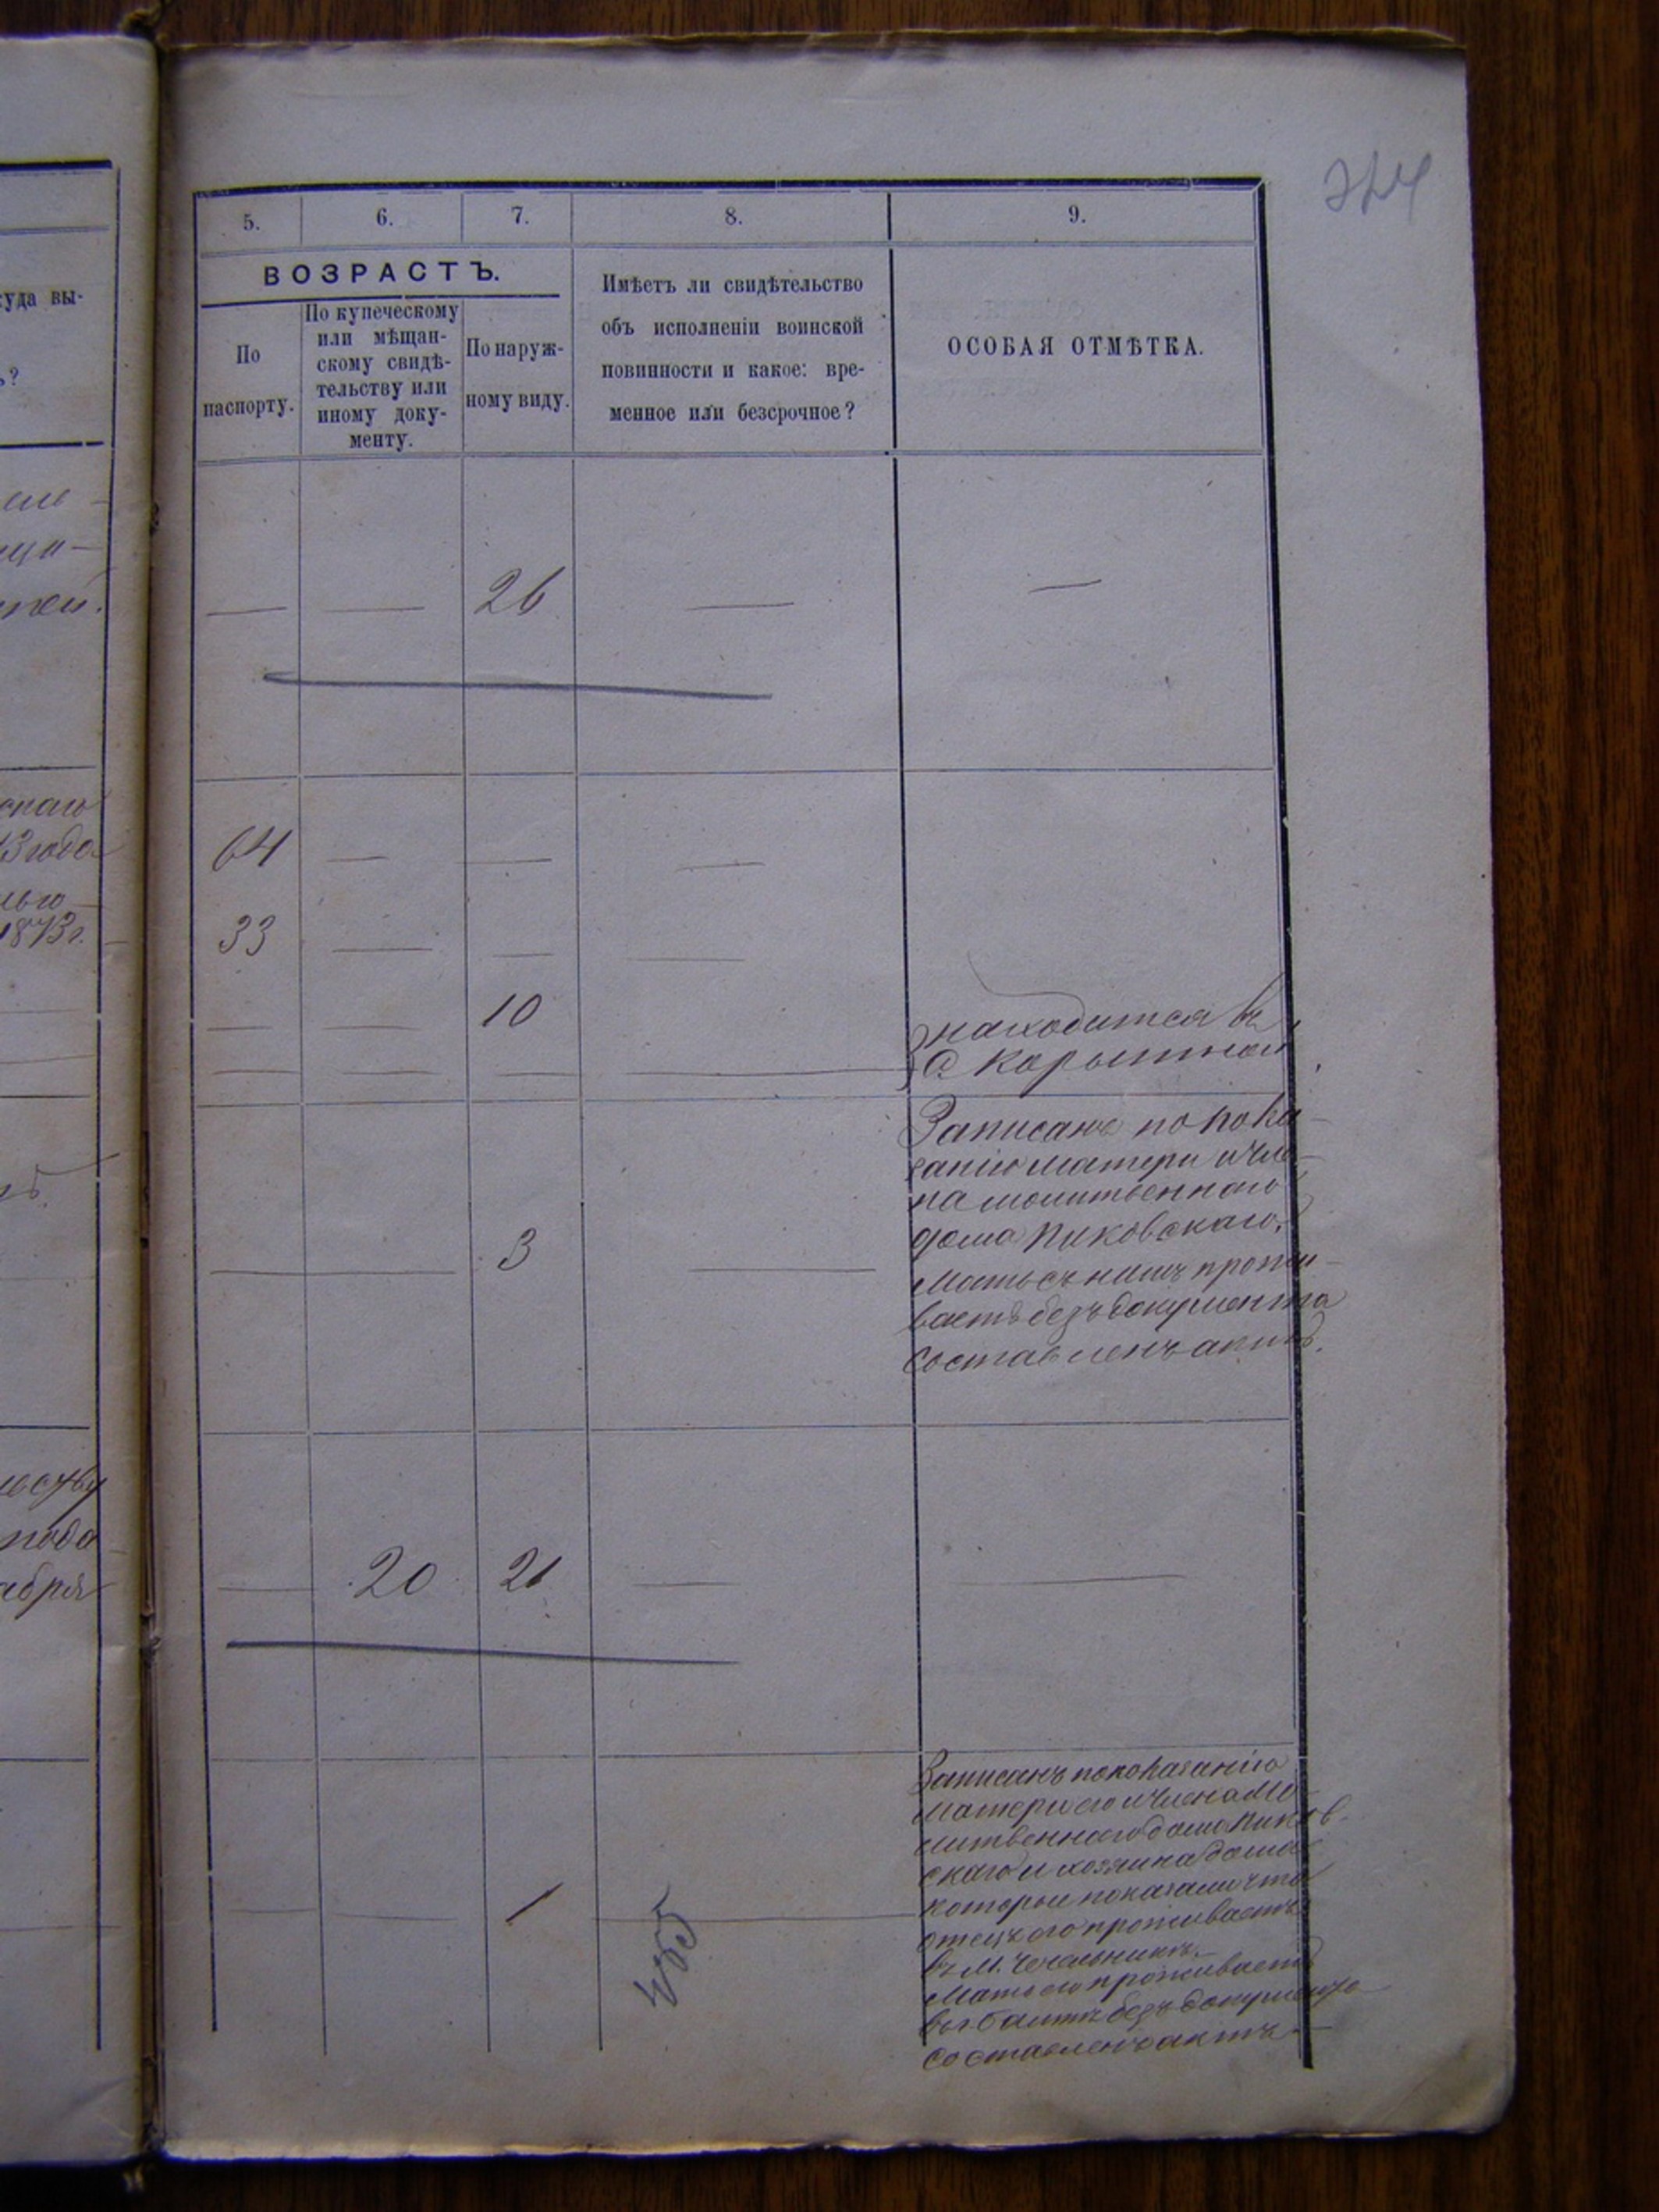 324
5. 6. 7. 8. 9.
ВОЗРАСТЪ.
По
паспорту.
По купеческому
или мѣщан-
скому свидѣ-
тельству или
иному доку-
менту.
По наруж-
ному виду.
Имѣетъ ли свидѣтельство
объ исполненіи воинской
повинности и какое: вре-
менное или безсрочное?
ОСОБАЯ ОТМѢТКА.
куда вы-
ъ?
— — 26 — —
скаго
3 года
1873 г.
64 — — —
33 — — —
— — 10
— — — —
находится въ
с. Корытной
Записанъ по пока-
занію матери и чле-
на молитвеннаго
дома Пиковскаго.
Мать съ нимъ прожи-
ваетъ безъ документа
составленъ актъ.
— — 3 —
года
абря
— 20 21 — —
Записанъ по показанію
матери его и члена мо-
литвеннаго дома Пиков-
скаго и хозяина дома
которые показали что
отецъ его проживаетъ
въ м. Чечельникѣ.
Мать его проживаетъ
въ г. Балтѣ безъ документа
составленъ актъ —
— — 1 —